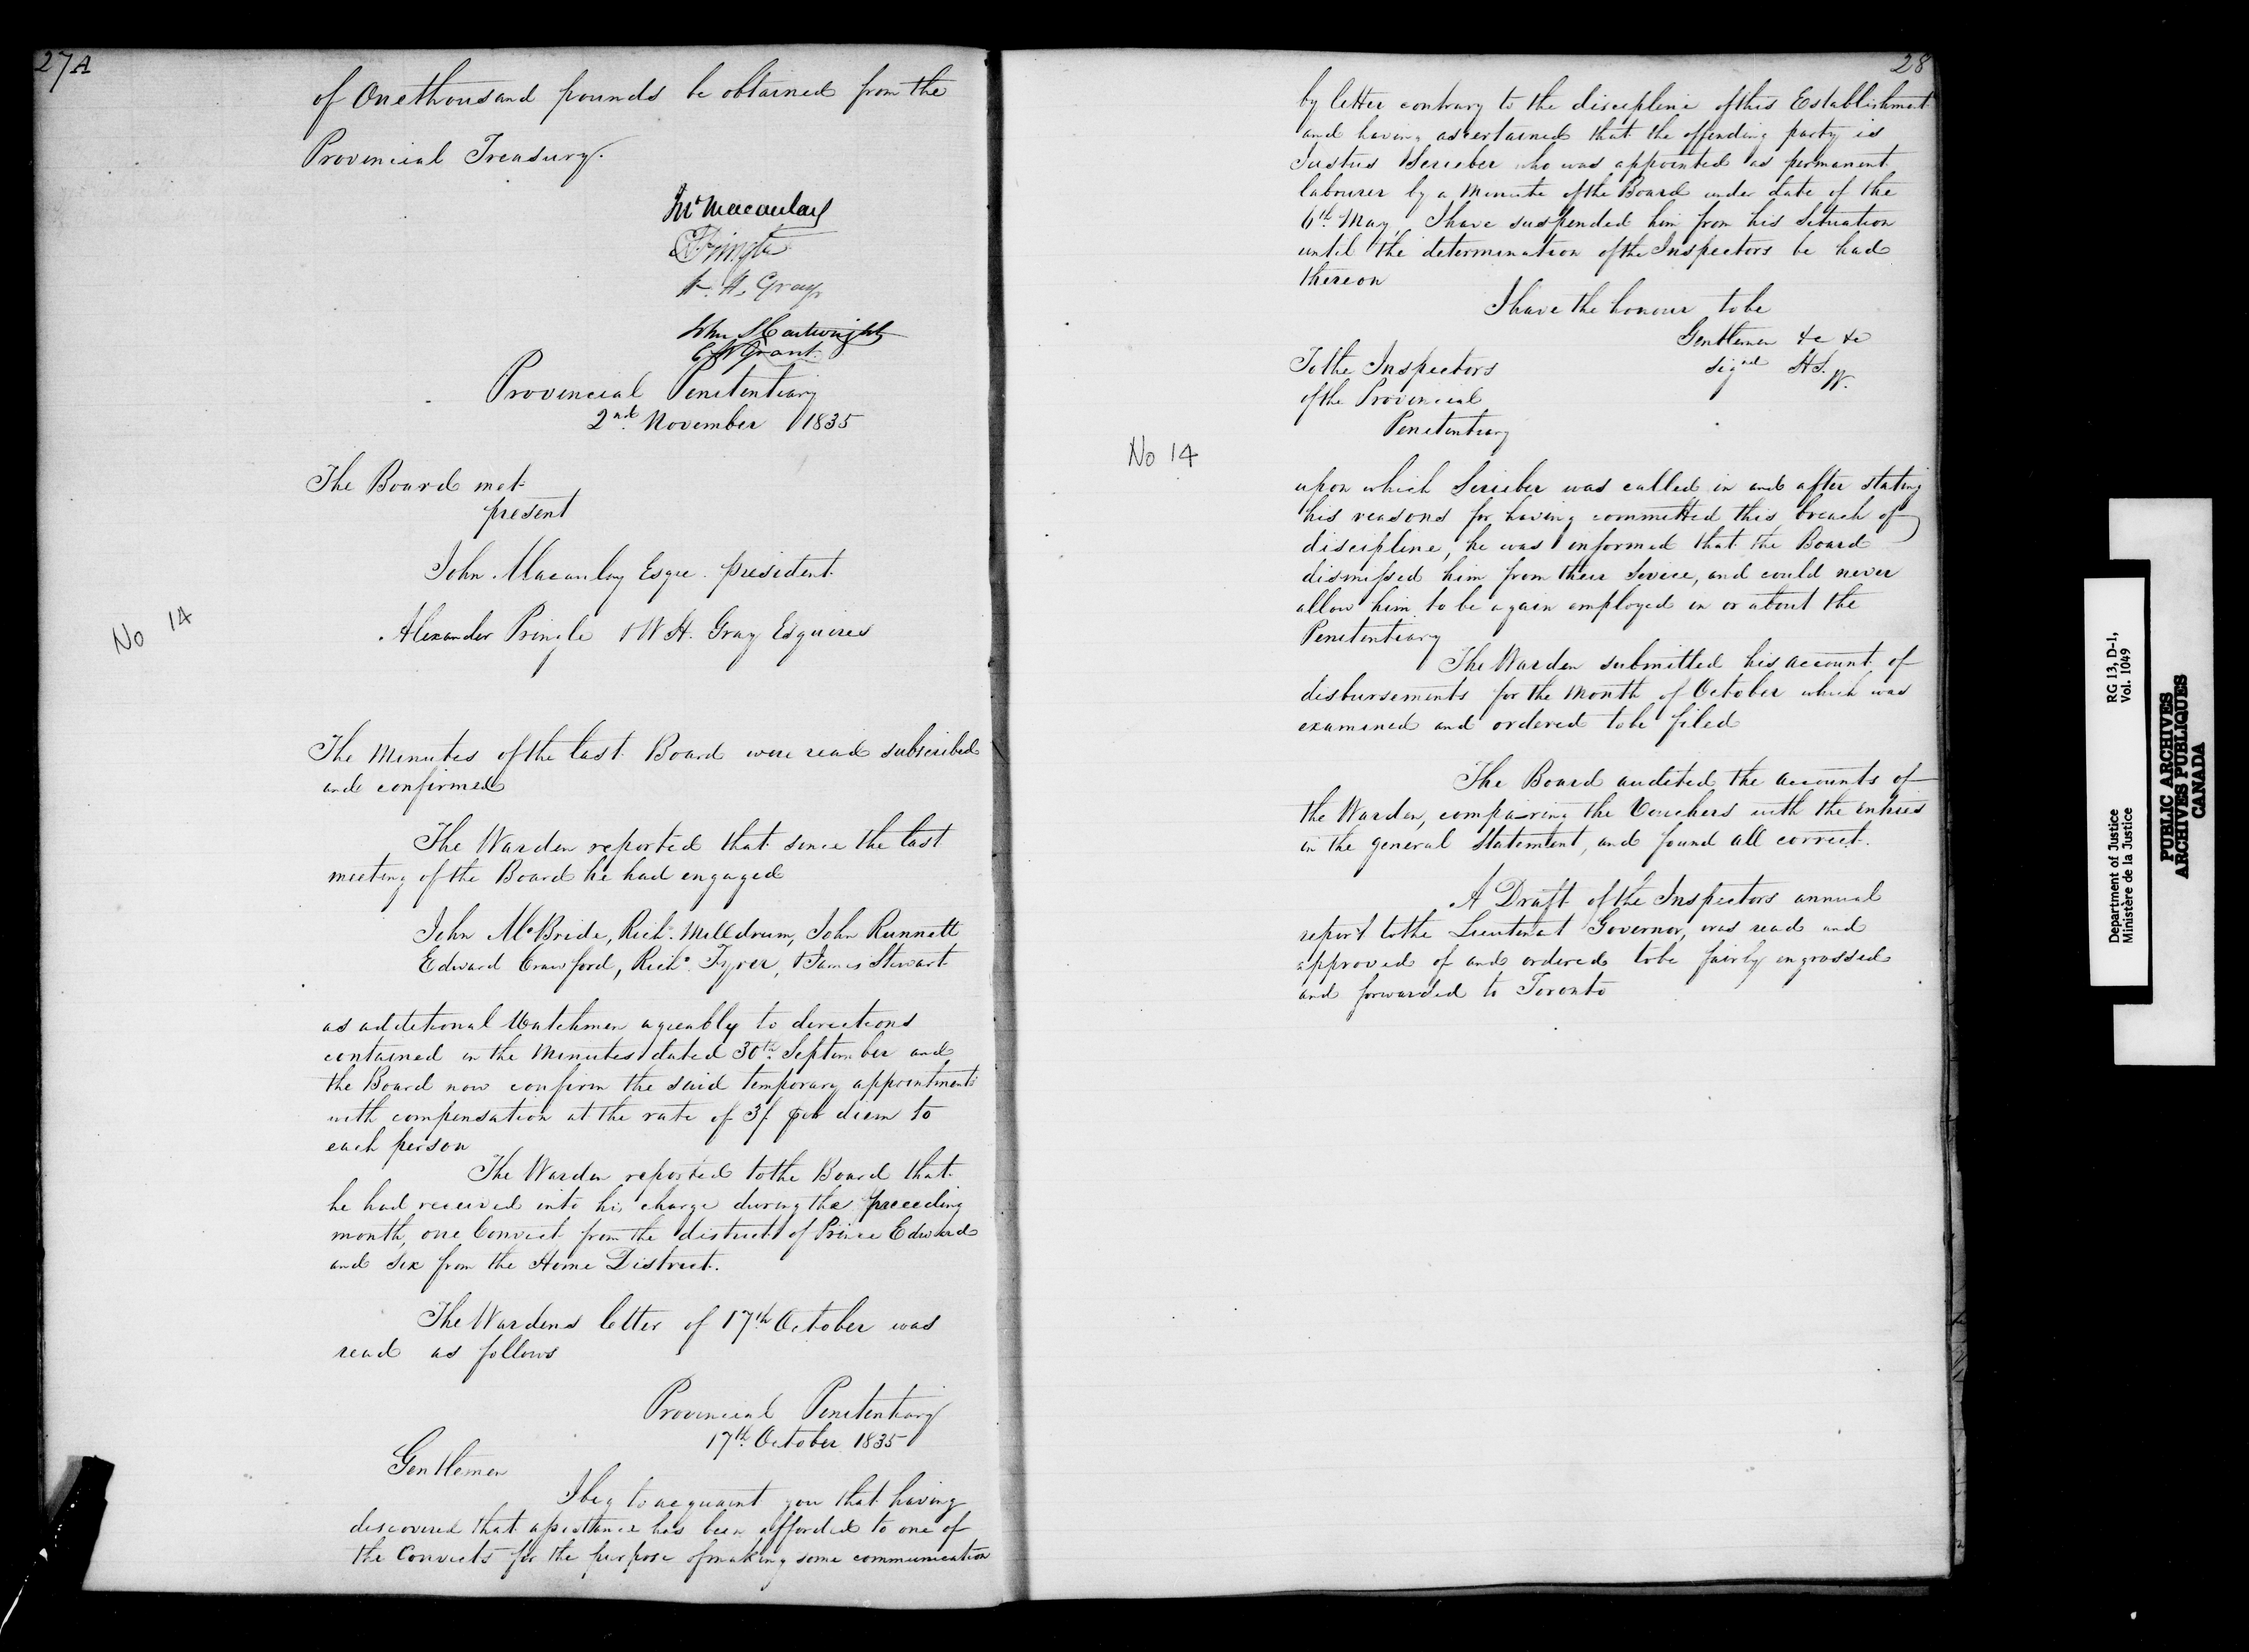 27A
of One thousand pounds be obtained from the
Provincial Treasury.
Jno Macaulay
A Pringle
W. H. Gray
John S Cartwright
C W Grant.
Provincial Penitentiary
2nd. November 1835
The Board met
present
John Macaulay Esqre. president
Alexander Pringle & W H. Gray Esquires
No 14
The Minutes of the last Board were read subscribed
and confirmed
The Warden reported that since the last
meeting of the Board he had engaged
John McBride, Richd. Milldrum, John Runnett
Edward Crawford, Richd. Tyrer, & James Stewart
as additional Watchmen agreeably to directions
contained in the Minutes dated 30th. September and
the Board now confirm the said temporary appointments
with compensation at the rate of 3/. per diem to
each person
The Warden reported to the Board that
he had received into his charge during the preceeding
month, one Convict from the district of Prince Edward
and six from the Home District.
The Wardens letter of 17th October was
read as follows
Provincial Penitentiary
17th. October 1835
Gentlemen
I beg to acquaint you that having
discovered that assistance has been afforded to one of
the Convicts for the purpose of making some communication
28
by letter contrary to the discipline of this Establishment
and having ascertained that the offending party is
Justus who was appointed as permanent
labourer by a Minute of the Board under date of the
6th. May, I have suspended him from his Situation
until the determination of the Inspectors be had
thereon
I have the honour to be
Gentlemen &c &c
Signed H S.
W.
To the Inspectors
of the Provincial
Penitentiary
No 14
upon which Scrieber was called in and after stating
his reasons for having committed this breach of
discipline, he was informed that the Board
dismissed him from their Service, and could never
allow him to be again employed in or about the
Penitentiary
The Warden submitted his account of
disbursements for the Month of October which was
examined and ordered to be filed
The Board audited the accounts of
the Warden, compairing the Vouchers with the entries
in the general Statement, and found all correct.
A Draft of the Inspectors annual
report to the Lieutenat Governor, was read and
approved of and ordered to be fairly engrossed
and forwarded to Toronto
Department of Justice RG 13, D-1,
Ministère de la Justice Vol. 1049
PUBLIC ARCHIVES
ARCHIVES PUBLIQUES
CANADA